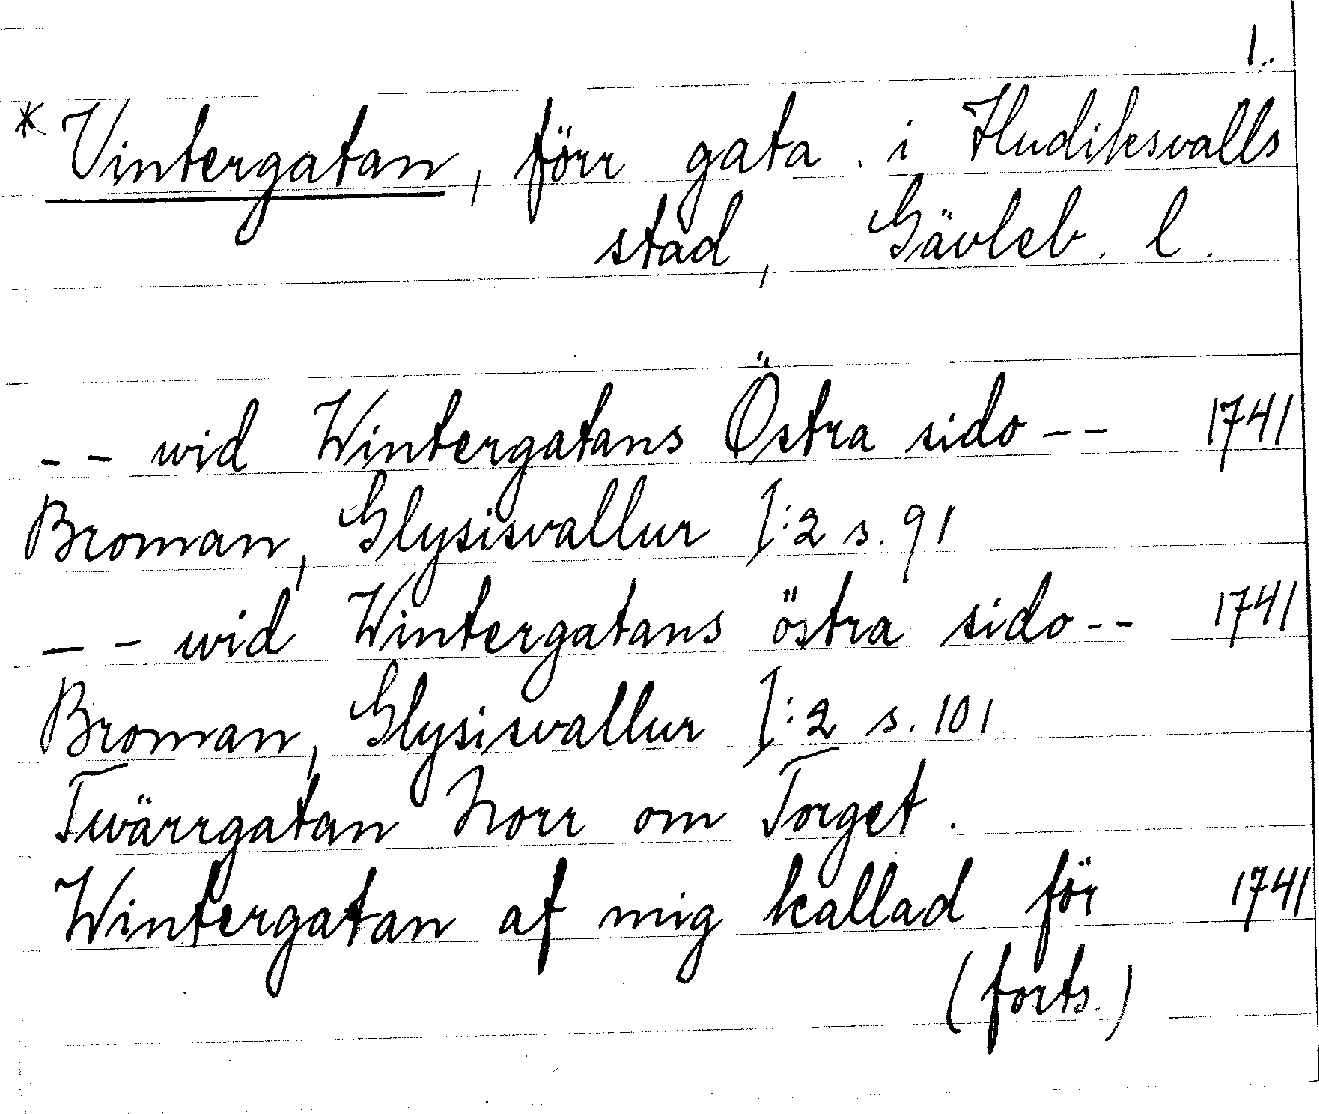 1.
* Vintergatan, förr gata i Hudiksvalls
stad, Gävleb. l.
-- wid Wintergatans Östra sido -- 1741
Broman, Glysisvallur I:2 s. 91
-- wid Wintergatans östra sido -- 1741
Broman, Glysisvallur I:2 s. 101
Twärrgatan Norr om Torget.
Wintergatan af mig kallad för 1741
(forts.)